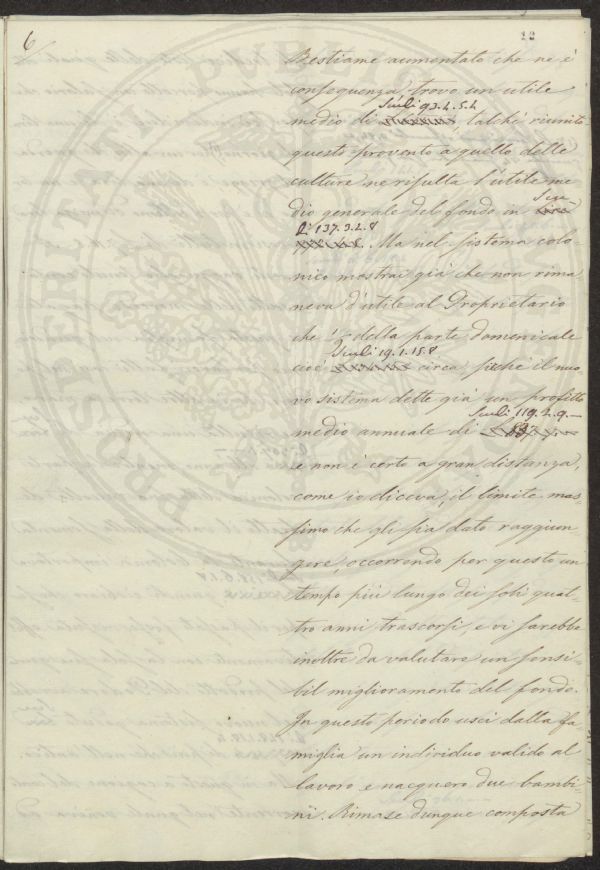 6
12
Bestiame aumentato che ne è
conseguenza trovo un utile
Scudi 93.4.5.4
medio di talché riunito
questo provento a quello delle
culture ne risulta l'utile me=
dio generale del fondo in Scu=
di 137.3.2.8
. Ma nel sistema colo=
nico mostrai già che non rima=
neva d'utile al Proprietario
che della parte domenicale
Scudi 19.1.15.8
cioè circa sicché il nuo=
vo sistema dette già un profitto
Scudi 119.2.9.—
medio annuale di
e non è certo a gran distanza,
come io diceva, il limite mas=
simo che gli sia dato raggiun=
gere, occorrendo per questo un
tempo più lungo dei soli quat=
tro anni trascorsi, e vi sarebbe
inoltre da valutare un sensi=
bil miglioramento del fondo.
In questo periodo uscì dalla fa=
miglia un individuo valido al
lavoro e nacquero due bambi=
ni. Rimase dunque composta